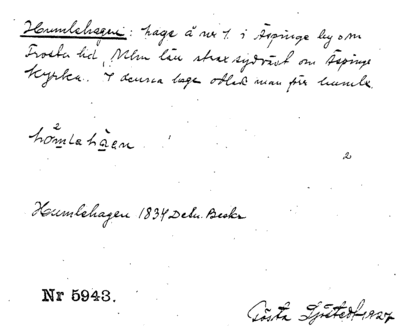 Humlehagen: hage å nr 1 i Äspinge by om
Frosta hd, Mlm län strax sydväst om Äspinge
kyrka. I denna hage odlade man förr humle
2
hömlahaen
2
Humlehagen 1834 Deln. Beskr
Nr 5943.
Gösta Sjöstedt 1927